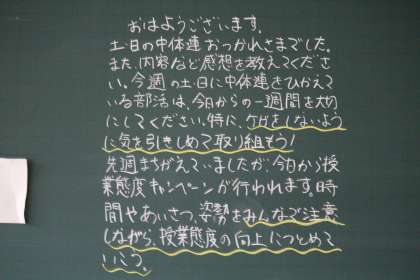 おはようございます.
土・日の中体連おつかれさまでした。
また、内容など感想を教えてくださ
い。今週の土・日に中体連をひかえて
いる部活は、今日からの一週間を大切
にしてください。特に、ケガをしないよう
に気を引きしめて取り組もう！
先週まちがえていましたが、今日から授
業態度キャンペーンが行われます。時
間やあいさつ、姿勢をみんなで注意
しながら、授業態度の向上につとめて
いこう。